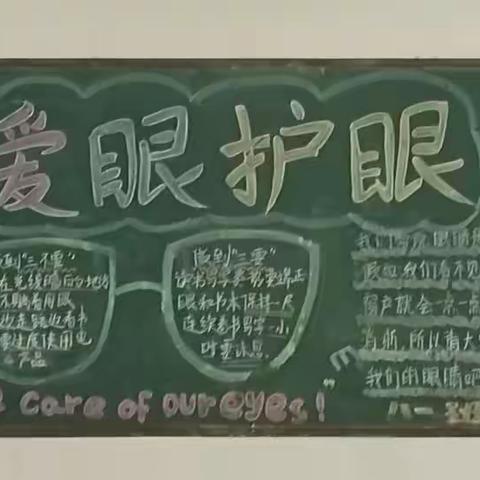 爱眼护眼
做到"三不要"
在光线暗的地方
不躺着用眼
边走路边看书
要过度使用电
子产品
做到"三要"
读书写字姿势要端正
眼和书本保持一尺
连续看书写字一小
时要休息
我们的
我们看不见
窗户就会一点一点
所以请大
我们的眼睛吧
care of our eyes!"
八一